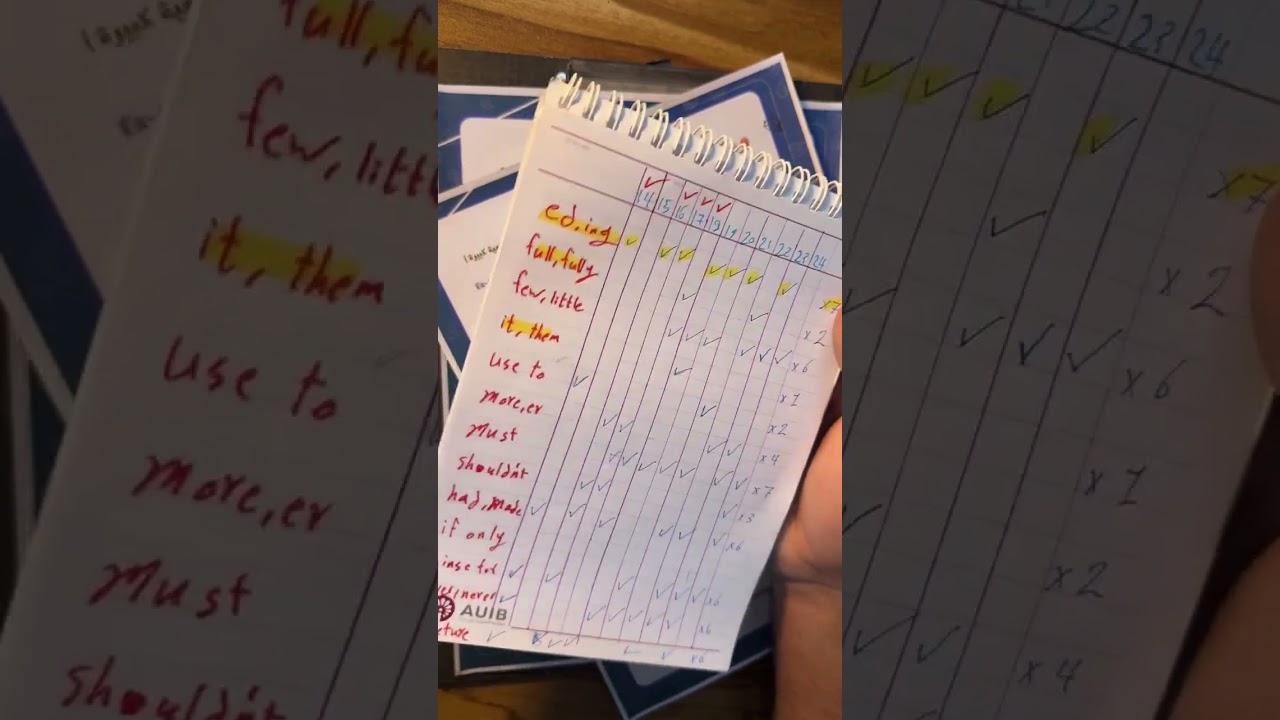 14 15 16 17 18 19 20 21 22 23 24
ed, ing ✓ ✓ ✓ ✓ ✓ ✓ ✓ x7
full, fully ✓ ✓ x2
few, little ✓ ✓ ✓ ✓ ✓ ✓ x6
it, them ✓ x1
use to ✓ ✓ x2
more, er ✓ ✓ ✓ ✓ x4
Must ✓ ✓ ✓ ✓ ✓ ✓ x7
shouldn't ✓ ✓ ✓ x3
had, made ✓ ✓ ✓ ✓ ✓ ✓ x6
if only
never
AUIB
x6
x6
22 23 24
full, fu
few, little
it, them
use to
more, er
Must
shouldn't
x7
x2
x6
x1
x2
x4